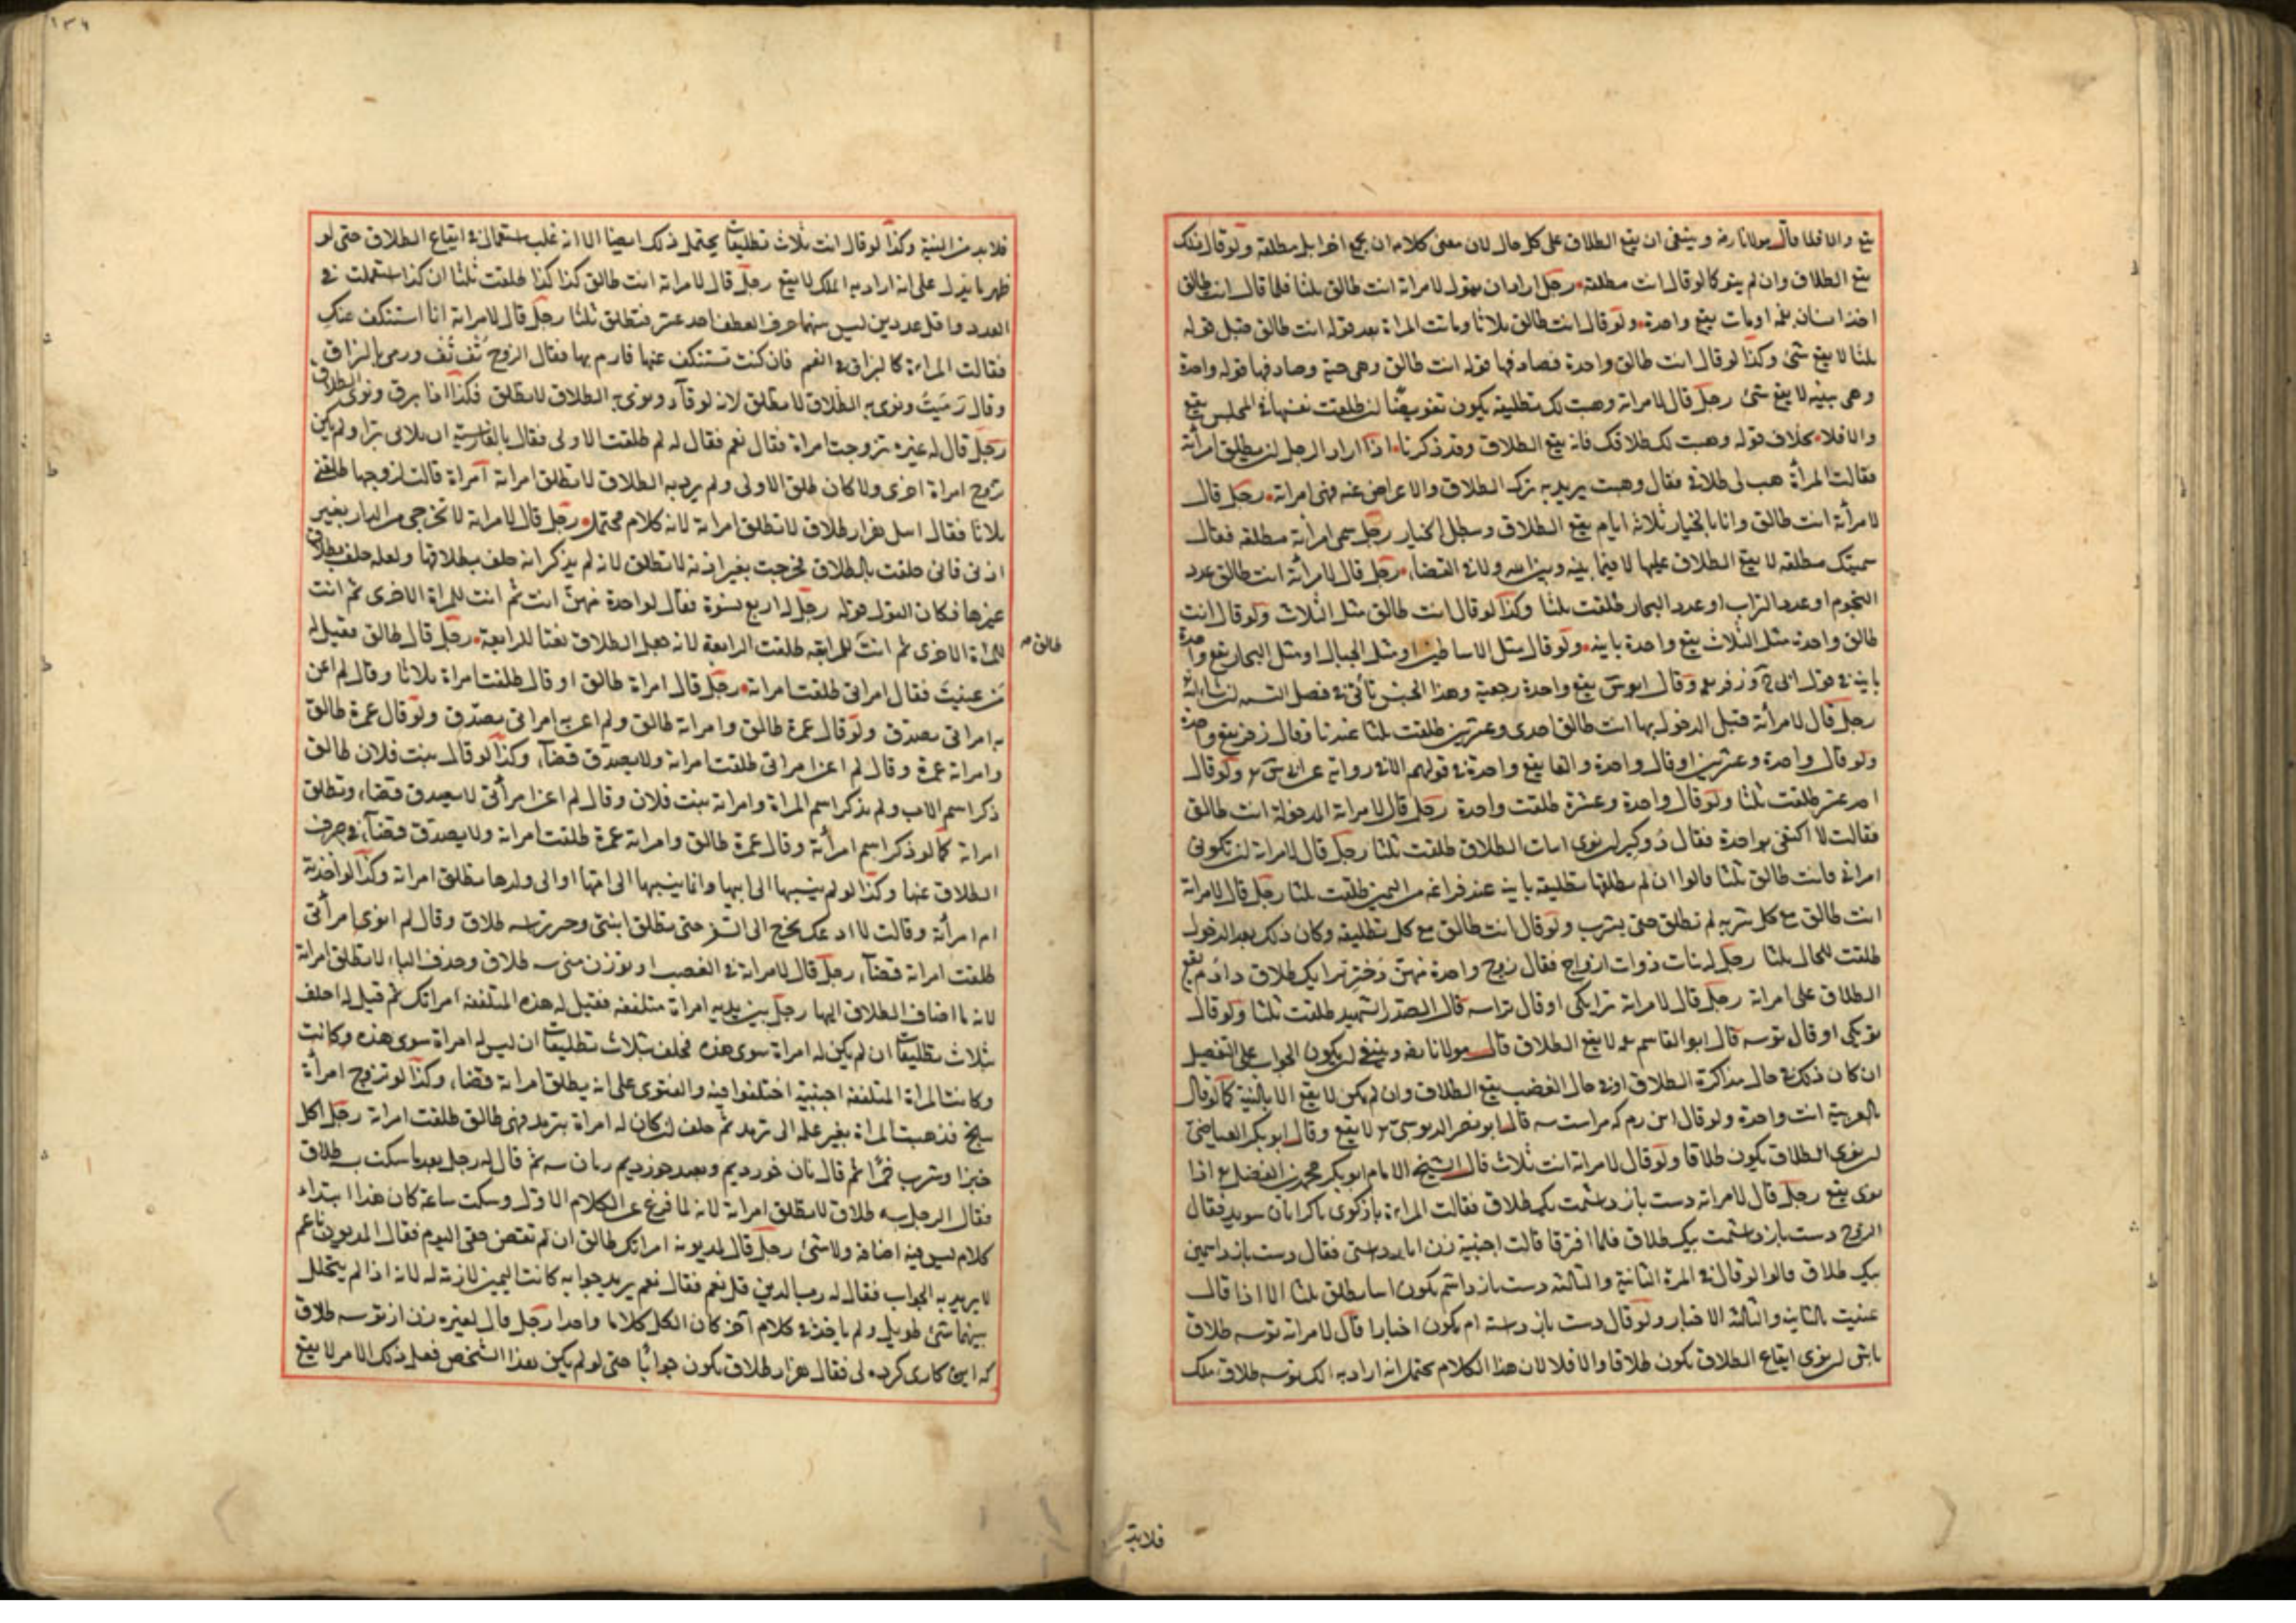 يقع والا فلا قال مولانا رضه وينبغى ان يقع الطلاق على كل حال لان معنى كلامه ان
يقع الطلاق وان لم ينو كما لو قال انت مطلقة رجل اراد ان يقول لامراته انت طالق ثلثا فلما قال انت طالق
اخذ انسان فمه او مات يقع واحدة ولو قال انت طالق ثلاثا وماتت المراة بعد قوله انت طالق قبل قوله
ثلثا لا يقع شئ وكذا لو قال انت طالق واحدة فصادفها قوله انت طالق وهى حية وصادفها قوله واحدة
وهى ميتة لا يقع شئ رجل قال لامراته وهبت لك تطليقة يكون تفويضا ان طلقت نفسها فى المجلس يقع
والا فلا بخلاف قوله وهبت لك طلاقك فانه يقع الطلاق وقد ذكرنا اذا اراد الرجل ان يطلق امرأته
فقالت المرأة هب لى طلاقى فقال وهبت يريد به ترك الطلاق والاعراض عنه فهى امراته رجل قال
لامرأته انت طالق وانا بالخيار ثلاثة ايام يقع الطلاق وبطل الخيار رجل سمى امرأته مطلقة فقال
سميتك مطلقة لا يقع الطلاق عليها لا فيما بينه وبين الله ولا فى القضاء رجل قال لامرأته انت طالق عدد
النجوم او عدد التراب او عدد البحار طلقت ثلثا وكذا لو قال انت طالق مثل الثلاث ولو قال انت
طالق واحدة مثل الثلاث يقع واحدة باينة ولو قال مثل الاساطين او مثل الجبال او مثل البحار يقع واحدة
باينة فى قول ابى ح وزفر وقال ابو س يقع واحدة رجعية وهذا الجنس يأتى فى فصل
رجل قال لامرأته قبل الدخول بها انت طالق احدى وعشرين طلقت ثلثا عندنا وقال زفر يقع واحدة
ولو قال واحدة وعشرين او قال واحدة والفا يقع واحدة فى قولهم الا فى رواية عن ابى س ولو قال
احد عشر طلقت ثلثا ولو قال واحدة وعشرة طلقت واحدة رجل قال لامراته المدخولة انت طالق
فقالت لا اكتفى بواحدة فقال دو كير ان نوى ايقاع الطلاق طلقت ثلثا رجل قال لامراته ان تكونى
امراتى فانت طالق ثلثا قالوا ان لم يطلقها تطليقة باينة عند فراغه من اليمين طلقت ثلثا رجل قال لامراته
انت طالق مع كل شربة لم تطلق حتى يشرب ولو قال انت طالق مع كل تطليقة وكان ذلك بعد الدخول
طلقت للحال ثلثا رجل له بنات ذوات ازواج فقال زوج واحدة منهن دختر ترا يك طلاق دادم يقع
الطلاق على امراته رجل قال لامراته ترا يكى او قال ترا سه قال الصدر الشهيد طلقت ثلثا ولو قال
تو يكى او قال تو سه قال ابو القاسم لا يقع الطلاق قال مولانا رضه وينبغى ان يكون الجواب على التفصيل
ان كان ذلك فى حال مذاكرة الطلاق او فى حال الغضب يقع الطلاق وان لم يكن لا يقع الا بالنية كما لو قال
بالعربية انت واحدة ولو قال اين زم كه مراست سه قال ابو نصر الدبوسى لا يقع وقال ابو بكر العياضى
ان نوى الطلاق يكون طلاقا ولو قال لامراته انت ثلاث قال الشيخ الامام ابو بكر محمد بن الفضل اذا
نوى يقع رجل قال لامراته دست باز داشتمت بيك طلاق فقالت المراءة باز كوى
الزوج دست باز داشتمت بيك طلاق فلما افترقا قالت اجنبية زن
بيك طلاق قالوا لو قال فى المرة الثانية والثالثة دست باز داشتم يكون
عنيت بالثانية والثالثة الاخبار ولو قال دست باز داشته ام يكون اخبارا قال لامراته تو سه طلاق
باش ان نوى ايقاع الطلاق يكون طلاقا والا فلا لان هذا الكلام يحتمل انه اراد به انك تو سه طلاق ملك
فلابد
فلا بد من النية وكذا لو قال انت ثلاث تطليقات يحتمل ذلك ايضا الا انه غلب استعماله فى ايقاع الطلاق حتى لو
ظهر ما يدل على انه اراد به الملك لا يقع رجل قال لامراته انت طالق كذا كذا طلقت ثلثا ان كذا استعملت فى
العدد واقل عددين ليس بينهما حرف العطف احد عشر فتطلق ثلثا رجل قال لامراته انا استنكف عنك
فقالت المراءة كالبزاق فى الفم فان كنت تستنكف عنها فارم بها فقال الزوج تف تف ورمى بالبزاق
وقال رميت ونوى به الطلاق لا تطلق
رجل قال له غيره تزوجت امراة فقال نعم فقال له لم طلقت الاولى فقال بالفارسية
تزوج امراة اخرى ولا كان طلق الاولى ولم يرد به الطلاق لا تطلق امراته امراة قالت لزوجها طلقنى
ثلاثا فقال اسل هزار طلاق لا تطلق امراته لانه كلام محتمل رجل قال لامراته لا تخرجى من الدار بغير
اذنى فانى حلفت بالطلاق فخرجت بغير اذنه لا تطلق لانه لم يذكر انه حلف بطلاقها ولعله حلف بطلاق
غيرها فكان القول قوله رجل له اربع نسوة فقال لواحدة منهن انت ثم انت للمراة الاخرى ثم انت
للمراة الاخرى ثم انت للرابعة طالق طلقت الرابعة لانه جعل الطلاق نعتا للرابعة رجل قال طالق فقيل له
من عنيت فقال امراتى طلقت امراته رجل قال امراة طالق او قال طلقت امراة ثلاثا وقال لم اعن
به امراتى يصدق ولو قال عمرة طالق وامراته طالق ولم اعن به امراتى يصدق ولو قال عمرة طالق
وامراته عمرة وقال لم اعن امراتى طلقت امراته ولا يصدق قضاء وكذا لو قال بنت فلان طالق
ذكر اسم الاب ولم يذكر اسم المراة وامراته بنت فلان وقال لم اعن امرأتى لا يصدق قضاء وتطلق
امراته كما لو ذكر اسم امرأته وقال عمرة طالق وامراته عمرة طلقت امراته ولا يصدق قضاء فى صرف
الطلاق عنها وكذا لو لم ينسبها الى ابيها وانما ينسبها الى امها او الى ولدها تطلق امراته وكذا لو اخذته
ام امرأته وقالت لا ادعك تخرج الى السفر حتى تطلق ابنتى وقال لم انو امرأتى
طلقت امراته قضاء رجل قال لامراته فى الغضب او تو زن منى سه طلاق وحذف الياء لا تطلق امراته
لانه ما اضاف الطلاق اليها رجل بين يديه امراة متلففة فقيل له هذه المتلففة امراتك ثم قيل له احلف
بثلاث تطليقات ان لم يكن له امراة سوى هذه فحلف بثلاث تطليقات ان ليس له امراة سوى هذه وكانت
وكانت المراة المتلففة اجنبية اختلفوا فيه والفتوى على انه يطلق امراته قضاء وكذا لو تزوج امرأة
ببلخ فذهبت المراة بغير علمه الى ترمد ثم حلف ان كان له امراة بترمد فهى طالق طلقت امراته رجل اكل
خبزا وشرب خمرا ثم قال نان خورديم ونبيذ خورديم زنان سه ثم قال له رجل بعد ما سكت بسه طلاق
فقال الرجل بسه طلاق لا تطلق امراته لانه لما فرغ عن الكلام الاول وسكت ساعة كان هذا ابتداء
كلام ليس فيه اضافة ولا شئ رجل قال لمديونه امراتك طالق ان لم تقض حقى اليوم فقال المديون ناعم
لا يريد به الجواب فقال له رب الدين قل نعم فقال نعم يريد جوابه كانت اليمين لازمة له لانه اذا لم يتخلل
بينهما شئ طويل ولم ياخذ فى كلام آخر كان الكل كلاما واحدا رجل قال لغيره زن از تو سه طلاق
كه اين كارى كرده لى فقال هزار طلاق يكون جوابا حتى لو لم يكن هذا الشخص فعل ذلك الامر لا يقع
طالق